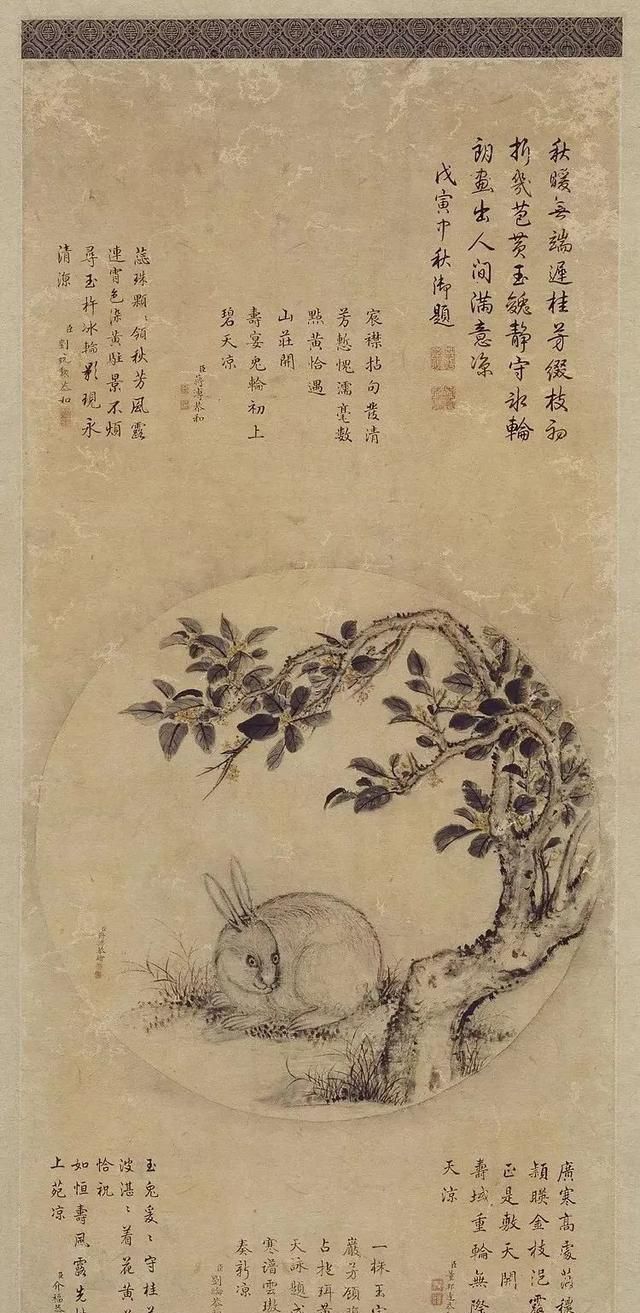 秋暖無端遲桂芳綴枝初
折幾苞黃玉㕙靜守冰輪
朗畫出人間滿意涼
戊寅中秋御題
宸襟拈句發清
芳慙愧濡毫數
點黃恰遇
山莊開
壽宴兔輪初上
碧天涼
臣蔣溥恭和
蕊珠顆顆領秋芳風露
連宵色染黃駐景不煩
尋玉杵冰輪影現永
清涼
臣劉統勲恭和
臣蔣溥恭繪
廣寒高處
穎暎金枝浥露
正是敷天開
壽域重輪無際
天涼
臣董邦達
一株玉
巖芳
占
天詠題
寒譜雲璈
奏新涼
臣劉綸恭
玉兔爰爰守桂
波湛湛着花黃
恰祝
如恒壽風露先
上苑涼
臣介福恭